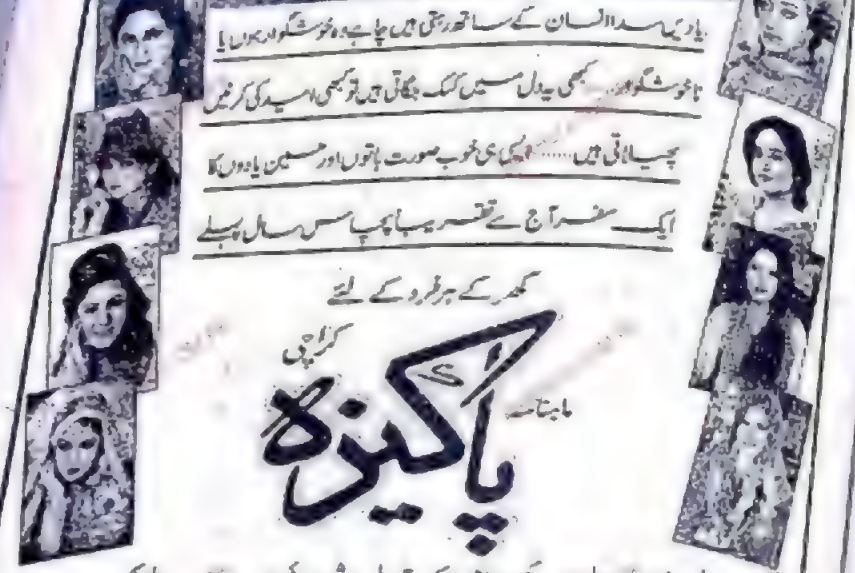 یادیں سدا انسان کے ساتھ رہتی ہیں چاہے وہ خوشگوار ہوں یا
ناخوشگوار..... کبھی یہ دل میں کسک جگاتی ہیں تو کبھی امید کی کرنیں
پھیلاتی ہیں...... ایسی ہی خوب صورت باتوں اور حسین یادوں کا
ایک سفر آج سے تقریباً پچاس سال پہلے
گھر کے ہر فرد کے لئے
کراچی
ماہنامہ
پاکیزہ